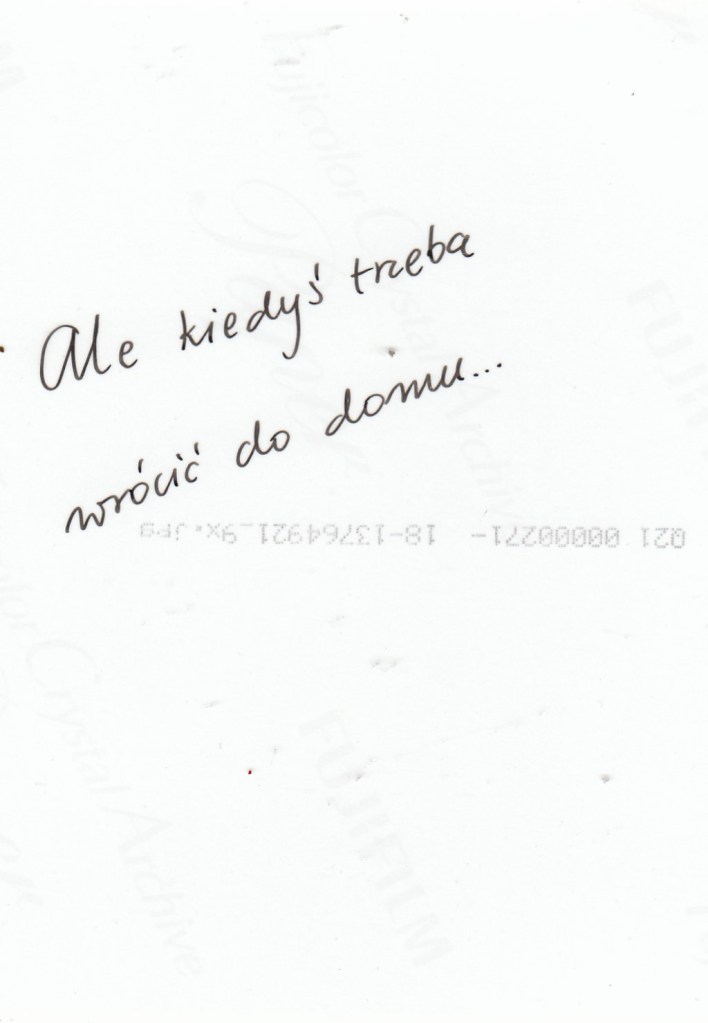 Ale kiedyś trzeba
wrócić do domu...
021 00000271- 18-13764921_9x.jpg
Fujicolor Crystal Archive
Paper
FUJIFILM
Fujicolor Crystal Archive
FUJIFILM